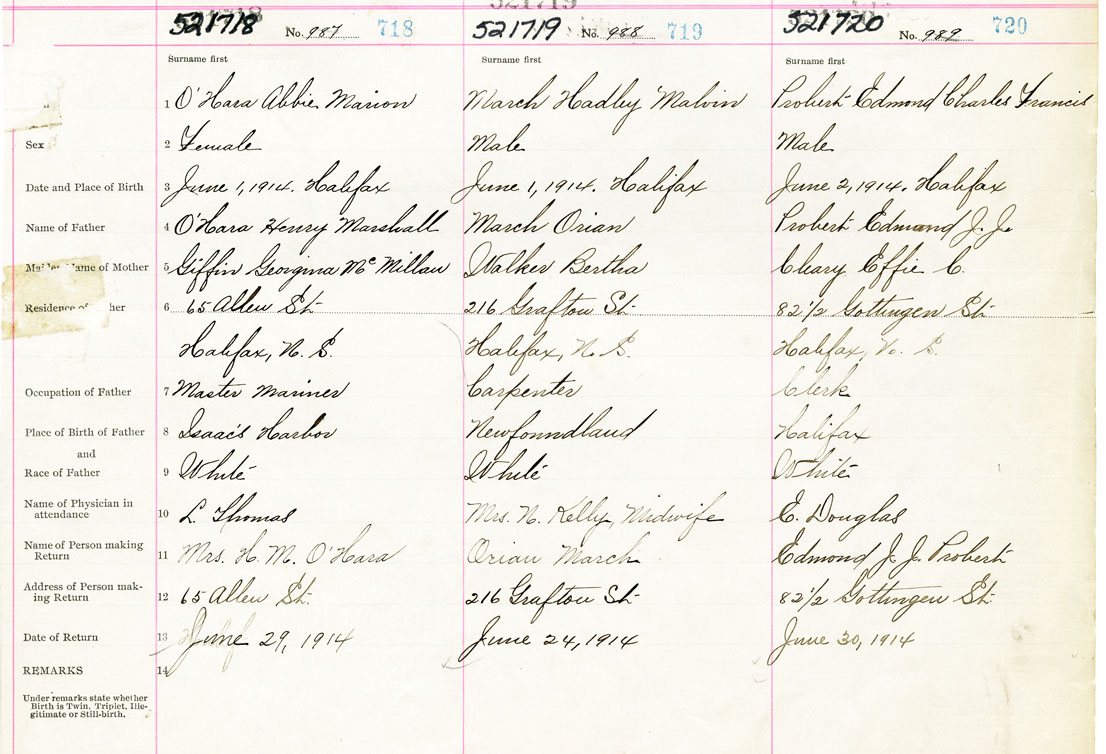 521718 No. 987 718 521719 No. 988 719 521720 No. 989 720
Surname first Surname first Surname first
1 O'Hara Abbie Marion March Hadley Malvin Probert Edmond Charles Francis
Sex 2 Female Male Male
Date and Place of Birth 3 June 1, 1914. Halifax June 1, 1914. Halifax June 2, 1914. Halifax
Name of Father 4 O'Hara Henry Marshall March Orian Probert Edmund J. J.
Name of Mother 5 Giffin Georgina Mc Millan Walker Bertha Cleary Effie C.
Residence of 6 65 Allen St. 216 Grafton St. 82 1/2 Gottingen St.
Halifax, N. S. Halifax, N. S. Halifax, N. S.
Occupation of Father 7 Master Mariner Carpenter Clerk
Place of Birth of Father 8 Isaac's Harbor Newfoundland Halifax
and
Race of Father 9 White White White
Name of Physician in
attendance 10 L. Thomas Mrs. N. Kelly, Midwife E. Douglas
Name of Person making
Return 11 Mrs. H. M. O'Hara Orian March Edmond J. J. Probert
Address of Person mak-
ing Return 12 65 Allen St. 216 Grafton St. 82 1/2 Gottingen St.
Date of Return 13 June 29, 1914 June 24, 1914 June 30, 1914
REMARKS 14
Under remarks state whether
Birth is Twin, Triplet, Ille-
gitimate or Still-birth.